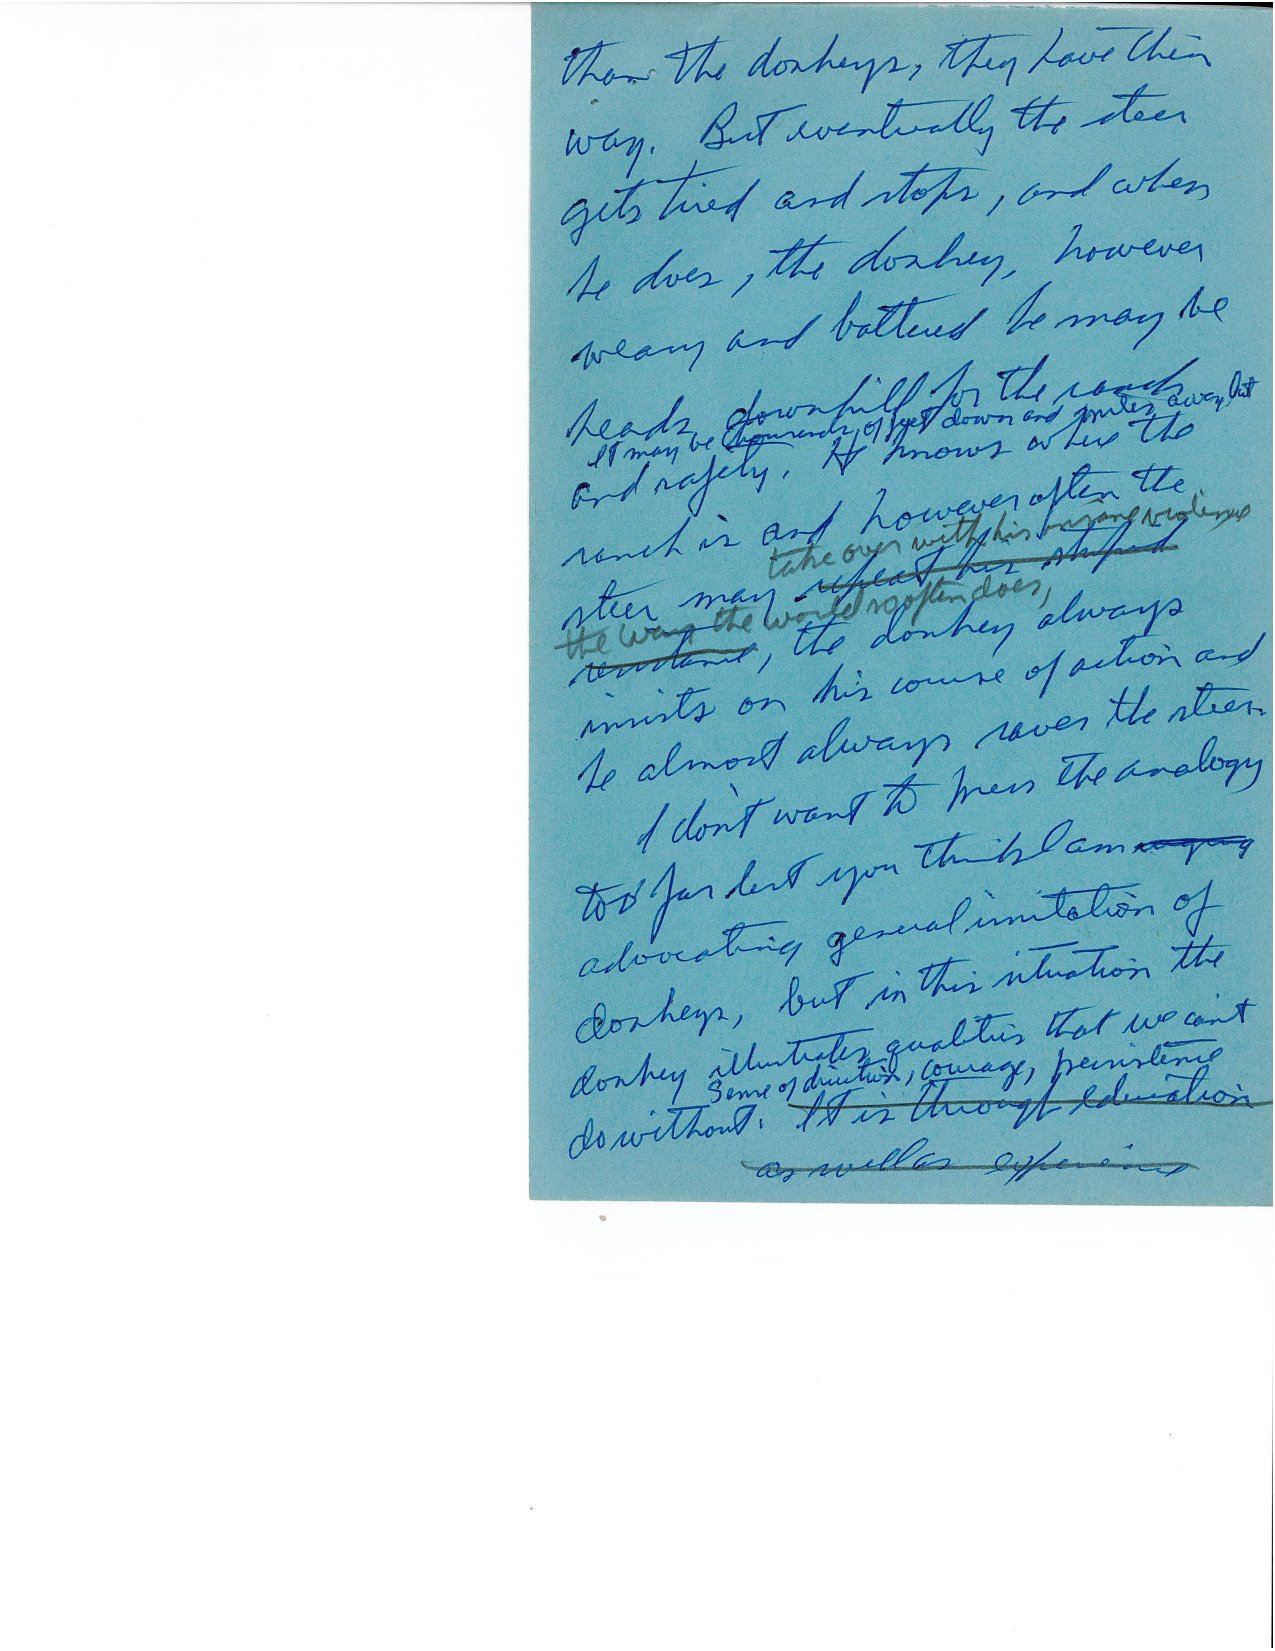 than the donkeys, they have their
way. But eventually the steer
gets tired and stops, and when
he does, the donkey, however
weary and battered he may be
heads downhill for the ranch
It may be thousands of feet down and miles away, but
and safety. He knows where the
ranch is and however often the
take over with his insane violence
steer may repeat his stupid
the way the world so often does,
resistance, the donkey always
insists on his course of action and
he almost always saves the steer.
I don't want to press the analogy
too far lest you think I am urging
advocating general imitation of
donkeys, but in this situation the
donkey illustrates qualities that we can't
Sense of direction, courage, persistence
do without. It is through education
as well as experience